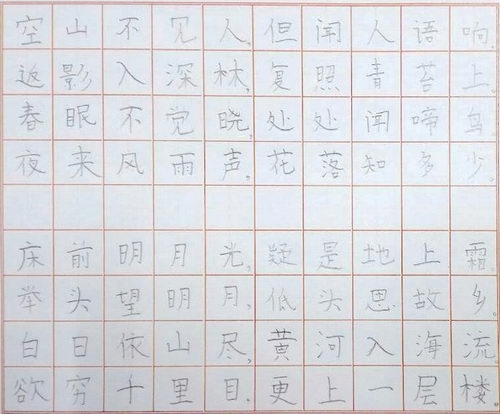 空山不见人，但闻人语响
返影入深林，复照青苔上。
春眠不觉晓，处处闻啼鸟
夜来风雨声，花落知多少。
床前明月光，疑是地上霜。
举头望明月，低头思故乡。
白日依山尽，黄河入海流。
欲穷千里目，更上一层楼